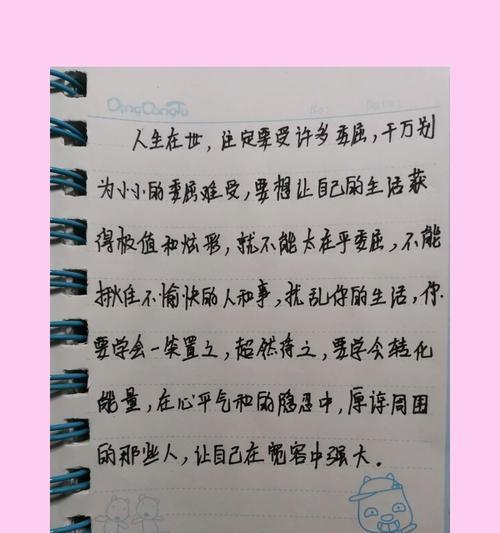 QingCongTu
No: Date:
人生在世，注定要受许多委屈，千万别
为小小的委屈难受，要想让自己的生活获
得极值和炫彩，就不能太在乎委屈，不能
揪住不愉快的人和事，扰乱你的生活，你
要学会一笑置之，超然待之，要学会转化
能量，在心平气和的隐忍中，原谅周围
的那些人，让自己在宽容中强大．